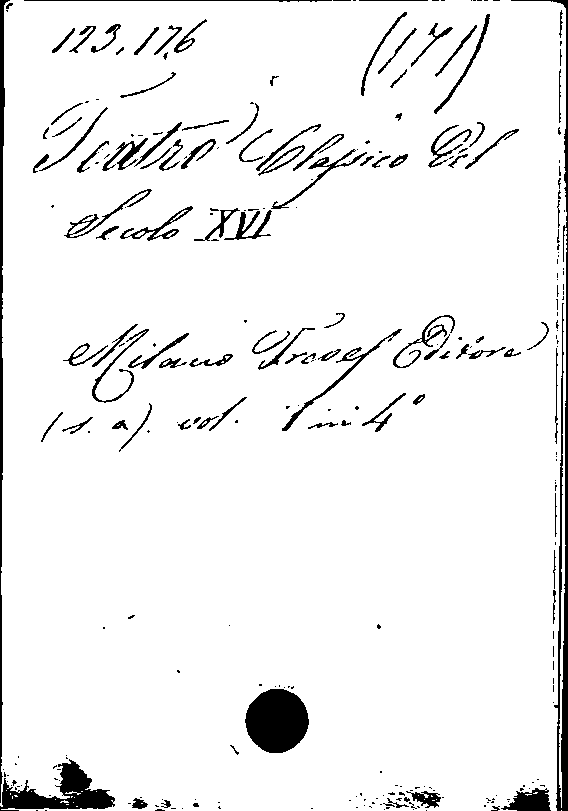 123.176 (171)
Teatro Classico Del
Secolo XVI
Milano Treves Editore
(s. a). vol. 1 in 4°